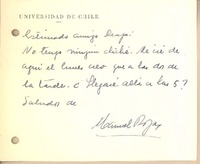 UNIVERSIDAD DE CHILE
Estimado amigo
No tengo ningún cliché. Me iré de
aquí el lunes creo que a las dos de
la tarde. ¿Llegaré allá a las 5?
Saludos de
Manuel Rojas